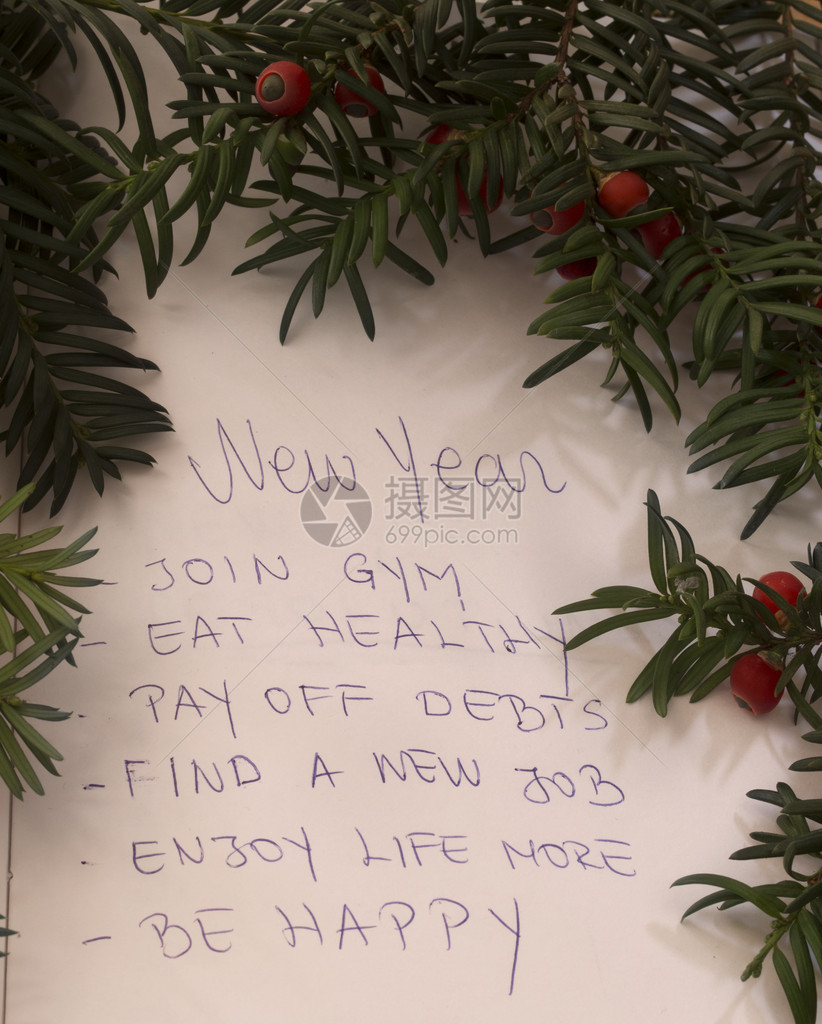 New Year
摄图网
699pic.com
- JOIN GYM
- EAT HEALTHY
- PAY OFF DEBTS
- FIND A NEW JOB
- ENJOY LIFE MORE
- BE HAPPY